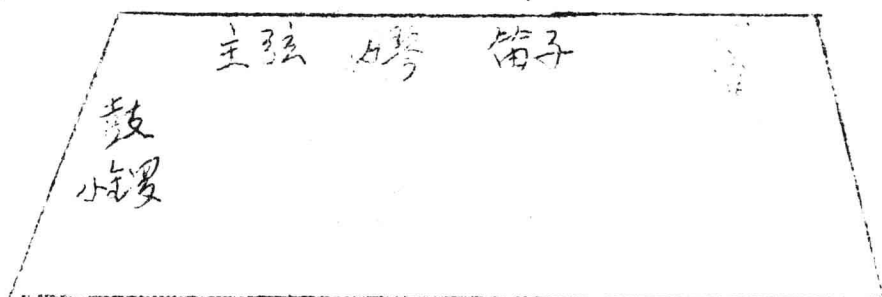 主弦 月琴 笛子
鼓
小锣